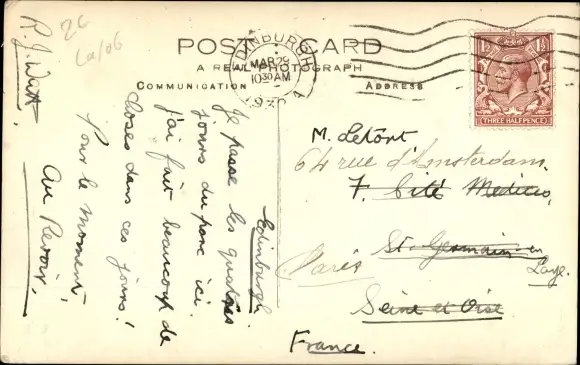 26
La/06
POST CARD
A REAL PHOTOGRAPH
COMMUNICATION
ADDRESS
EDINBURGH
MAR 29
1030 AM
1930
1½ 1½
THREE HALFPENCE
Edinburgh.
Je passe les quatres
jours du parc ici.
J'ai fait beaucoup de
choses dans ces jours!
Pour le moment
Au Revoir,
R. J. Watt.
M. Letort
64 rue d'Amsterdam.
7. Cité Medicis,
St. Germain en
Laye.
Paris
Seine et Oise
France.